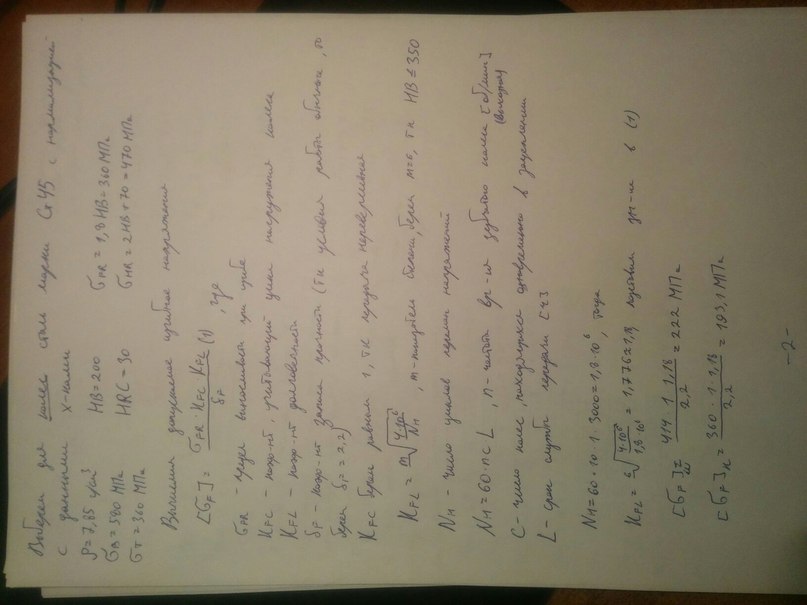 Выберем для колеса сталь марки Ст 45 с нормализацией
с данными х-ками
ρ = 7,85 г/см³ HB = 200 σFR = 1,8 HB = 360 МПа
σв = 580 МПа HRC = 30 σHR = 2HB + 70 = 470 МПа
σт = 360 МПа
Вычислим допускаемое изгибное напряжения
[σF] = σFR · KFC · KFL / δF (1) , где
σFR - предел выносливости при изгибе
KFC - коэф-нт, учитывающий цикл нагружения колеса
KFL - коэф-нт долговечности
δF - коэф-нт запаса прочности (тк условия работы обычные, то
берем δF = 2,2)
KFC берем равным 1, тк передача нереверсивная
KFL = ᵐ√(4·10⁶ / NH) , m - показатель степени, берем m=6, тк HB ≤ 350
NH - число циклов перемен напряжений
NH = 60 · n c L , n - частота вр-ия зубчатого колеса [об/мин]
(выходная)
C - число колес, находящихся одновременно в зацеплении
L - срок службы передачи [ч]
NH = 60 · 10 · 1 · 3000 = 1,8 · 10⁶ , тогда
KFL = ⁶√(4·10⁶ / 1,8·10⁶) = 1,1 ≈ 1,18 зн-ия в (1)
[σF]ш = 414 · 1 · 1,18 / 2,2 = 222 МПа
[σF]к = 360 · 1 · 1,18 / 2,2 = 193,1 МПа
-2-